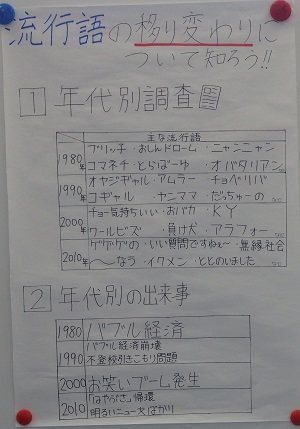 流行語の移り変わりに
ついて知ろう!!
1 年代別調査図
主な流行語
1980年
ブリッ子・おしんドローム・ニャンニャン
コマネチ・とらばーゆ・オバタリアン など
1990年
オヤジギャル・アムラー・チョベリバ
コギャル・ヤンママ・だっちゅーの など
2000年
チョー気持ちいい・おバカ・KY
ワールビズ・負け犬・アラフォー など
2010年
ゲゲゲの・いい質問ですねぇ〜・無縁社会
〜なう・イクメン・ととのいました など
2 年代別の出来事
1980 バブル経済
1990 バブル経済崩壊
不登校引きこもり問題
2000 お笑いブーム発生
2010 「はやぶさ」帰環
明るいニュースばかり